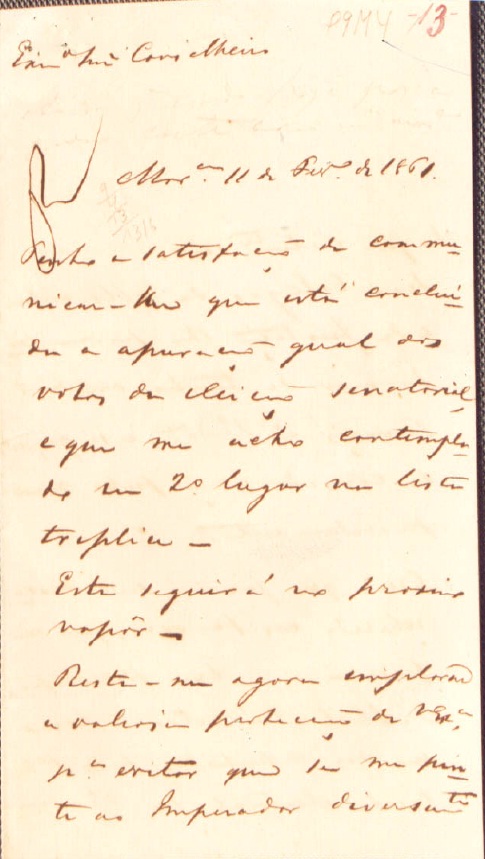 P9M4 -13-
Exmº Snr Conselheiro
Marm 11 de Fevº de 1861.
Tenho a satisfacção de commu-
nicar-lhe que está conclui-
da a apuração geral dos
votos da eleição senatorial,
e que me acho contempla-
do em 2º lugar na lista
triplice -
Esta seguirá no proximo
vapôr -
Resta-me agora implorar
a valiosa protecção de VExª,
pª evitar que se me pin-
te ao Imperador diversamte